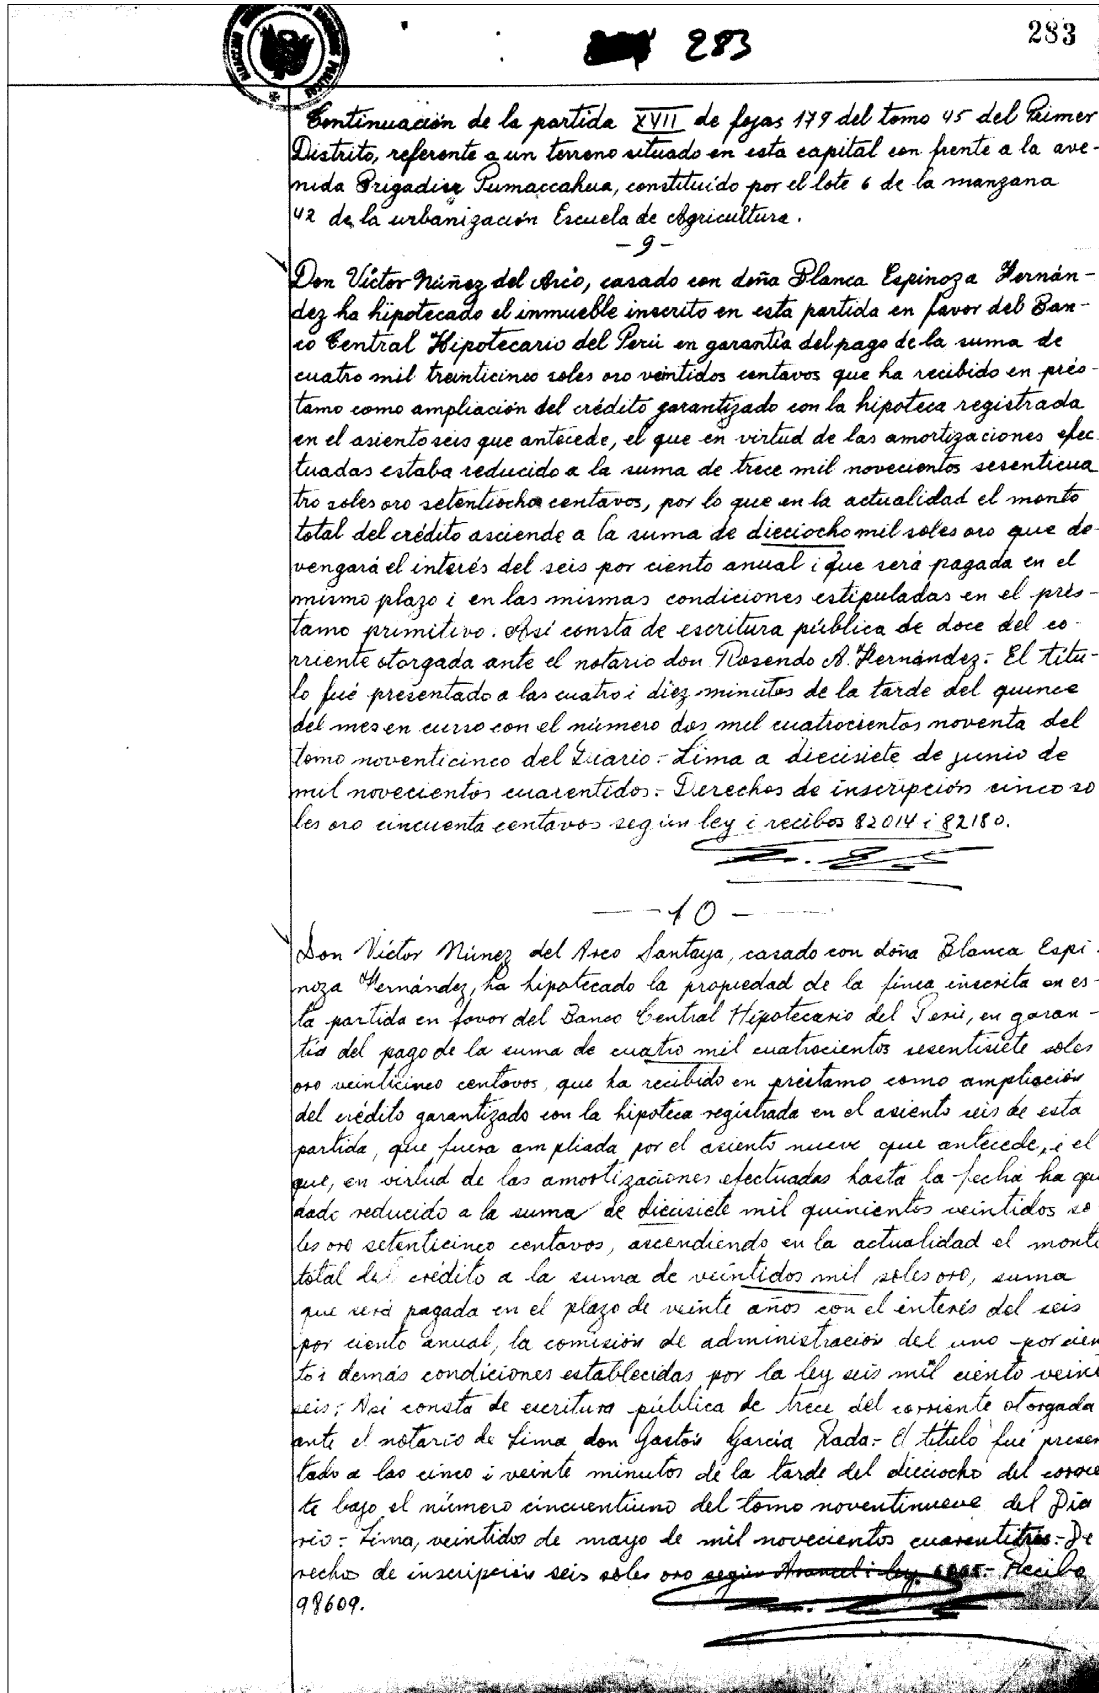 283
283
Continuación de la partida XVII de fojas 179 del tomo 45 del Primer
Distrito, referente a un terreno situado en esta capital con frente a la ave-
nida Brigadier Pumaccahua, constituído por el lote 6 de la manzana
42 de la urbanización Escuela de Agricultura.
- 9 -
Don Víctor Núñez del Arco, casado con doña Blanca Espinoza Hernán-
dez ha hipotecado el inmueble inscrito en esta partida en favor del Ban-
co Central Hipotecario del Perú en garantía del pago de la suma de
cuatro mil treinticinco soles oro veintidos centavos que ha recibido en prés-
tamo como ampliación del crédito garantizado con la hipoteca registrada
en el asiento seis que antecede, el que en virtud de las amortizaciones efec
tuadas estaba reducido a la suma de trece mil novecientos sesenticua
tro soles oro setentiocho centavos, por lo que en la actualidad el monto
total del crédito asciende a la suma de dieciocho mil soles oro que de-
vengará el interés del seis por ciento anual i que será pagada en el
mismo plazo i en las mismas condiciones estipuladas en el prés-
tamo primitivo. Así consta de escritura pública de doce del co-
rriente otorgada ante el notario don Rosendo A. Hernández.- El títu-
lo fué presentado a las cuatro i diez minutos de la tarde del quince
del mes en curso con el número dos mil cuatrocientos noventa del
tomo noventicinco del Diario.- Lima a diecisiete de junio de
mil novecientos cuarentidos.- Derechos de inscripción cinco so
les oro cincuenta centavos según ley i recibos 82014 i 82180.
- 10 -
Don Víctor Núnez del Arco Santaya, casado con doña Blanca Espi-
noza Hernández, ha hipotecado la propiedad de la finca inscrita en es-
ta partida en favor del Banco Central Hipotecario del Perú, en garan-
tía del pago de la suma de cuatro mil cuatrocientos sesentisiete soles
oro veinticinco centavos, que ha recibido en préstamo como ampliación
del crédito garantizado con la hipoteca registrada en el asiento seis de esta
partida, que fuera ampliada por el asiento nueve que antecede, i el
que, en virtud de las amortizaciones efectuadas hasta la fecha ha que
dado reducido a la suma de diecisiete mil quinientos veintidos so
les oro setenticinco centavos, ascendiendo en la actualidad el monto
total del crédito a la suma de veintidos mil soles oro, suma
que será pagada en el plazo de veinte años con el interés del seis
por ciento anual, la comisión de administración del uno por cien
to i demás condiciones establecidas por la ley seis mil ciento veinti
seis; Así consta de escritura pública de trece del corriente otorgada
ante el notario de Lima don Gastón García Rada.- El título fué presen
tado a las cinco i veinte minutos de la tarde del dieciocho del corrien
te bajo el número cincuentiuno del tomo noventinueve del Dia
rio.- Lima, veintidos de mayo de mil novecientos cuarentitrés.- De
rechos de inscripción seis soles oro según Arancel i ley.- Recibo
98609.